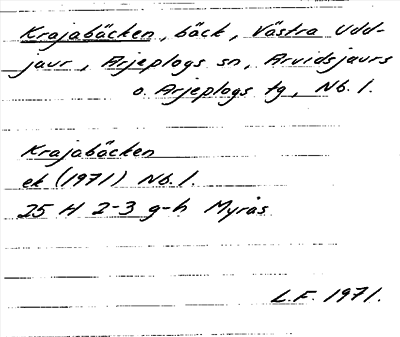 Krajabäcken, bäck, Västra Udd-
jaur, Arjeplogs sn, Arvidsjaurs
o. Arjeplogs tg, Nb. l.
Krajabäcken
ek (1971) Nb. l.
25 H 2-3 g-h Myrås
L.F. 1971.